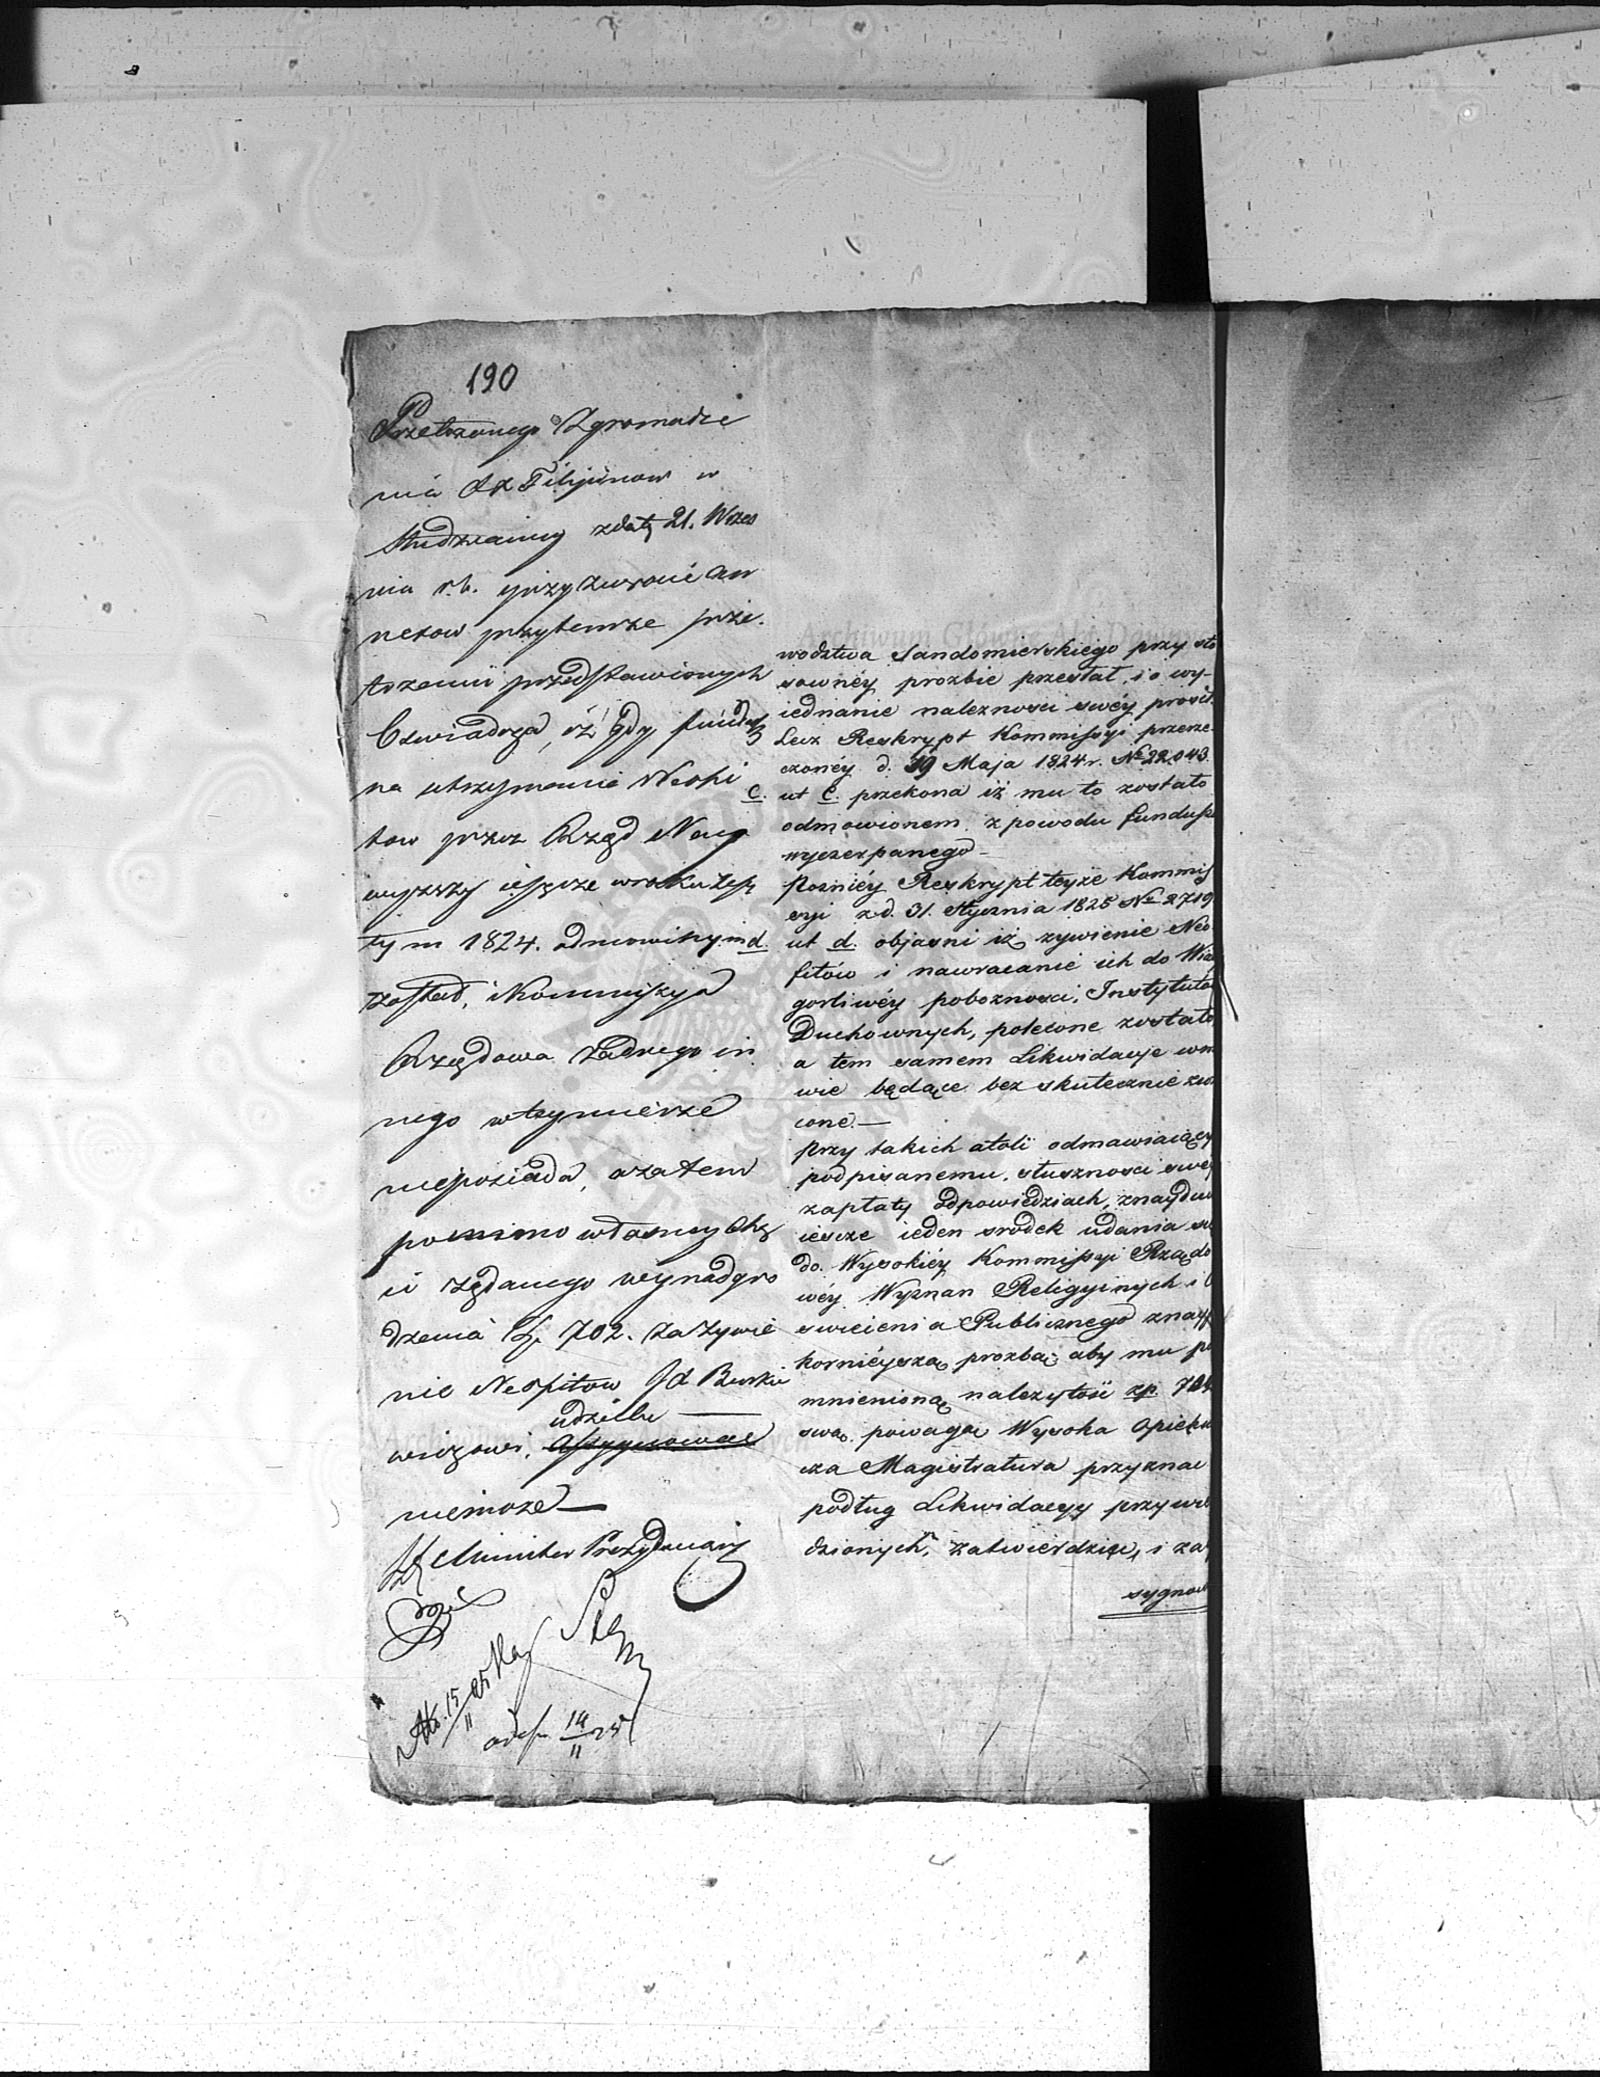 190
Przełożonego Zgromadze
nia XX Filipinow w
Studziannej z daty 21. Wrzes
nia r. b. y przy zwrocie an
nexow przy temże prze-
łożeniu przedstawionych
Oświadcza, iż gdy fundusz
na utrzymanie Neofi
tow przez Rząd Nay
wyższy ieszcze w roku zesz
łym 1824. odmowionym
został, i Kommissya
Rządowa żadnego in
nego w tey mierze
nieposiada, a zatem
pomimo własney chę
ci żądanego wynadgro
dzenia Zł. 702. za żywie
nie Neofitow Xd
udzielić
assygnować
niemoże
Minister Prezyduiący
14/11 25
wodztwa Sandomierskiego przy sto
sownéy prozbie przesłał, i o wy-
iednanie należnosci swéy prosił.
Lecz Reskrypt Kommissyi przerze-
czonéy d. 19 Maja 1824 r. No 22043.
c. ut c. przekona iż mu to zostało
odmowionem z powodu fundusz
wyczerpanego
Pozniéy Reskrypt teyże Kommis
syi z d. 31. Stycznia 1825 No 2719
d. ut d. objasni iż zywienie Neo
fitów i nawracanie ich do Wia
gorliwéy poboznosci, Instytutó
Duchownych, polecone zostało
a tem samem Likwidacye
wie będące bez skutecznie zwr
cone.—
Przy takich atoli odmawiaiący
podpisanemu, słusznosci swey
zapłaty odpowiedziach, znayduie
ieszcze ieden srodek udania się
do Wysokiéy Kommissyi Rządo
wéy Wyznan Religyinych i O
swiecenia Publicznego z nayp
kornieyszą prozbą, aby mu po
mnienioną należytość zp. 704
swą powagą Wysoka Opieku
cza Magistratura przyznać
podług Likwidacyy przywie
dzionych, zatwierdzić, i za
sygnow